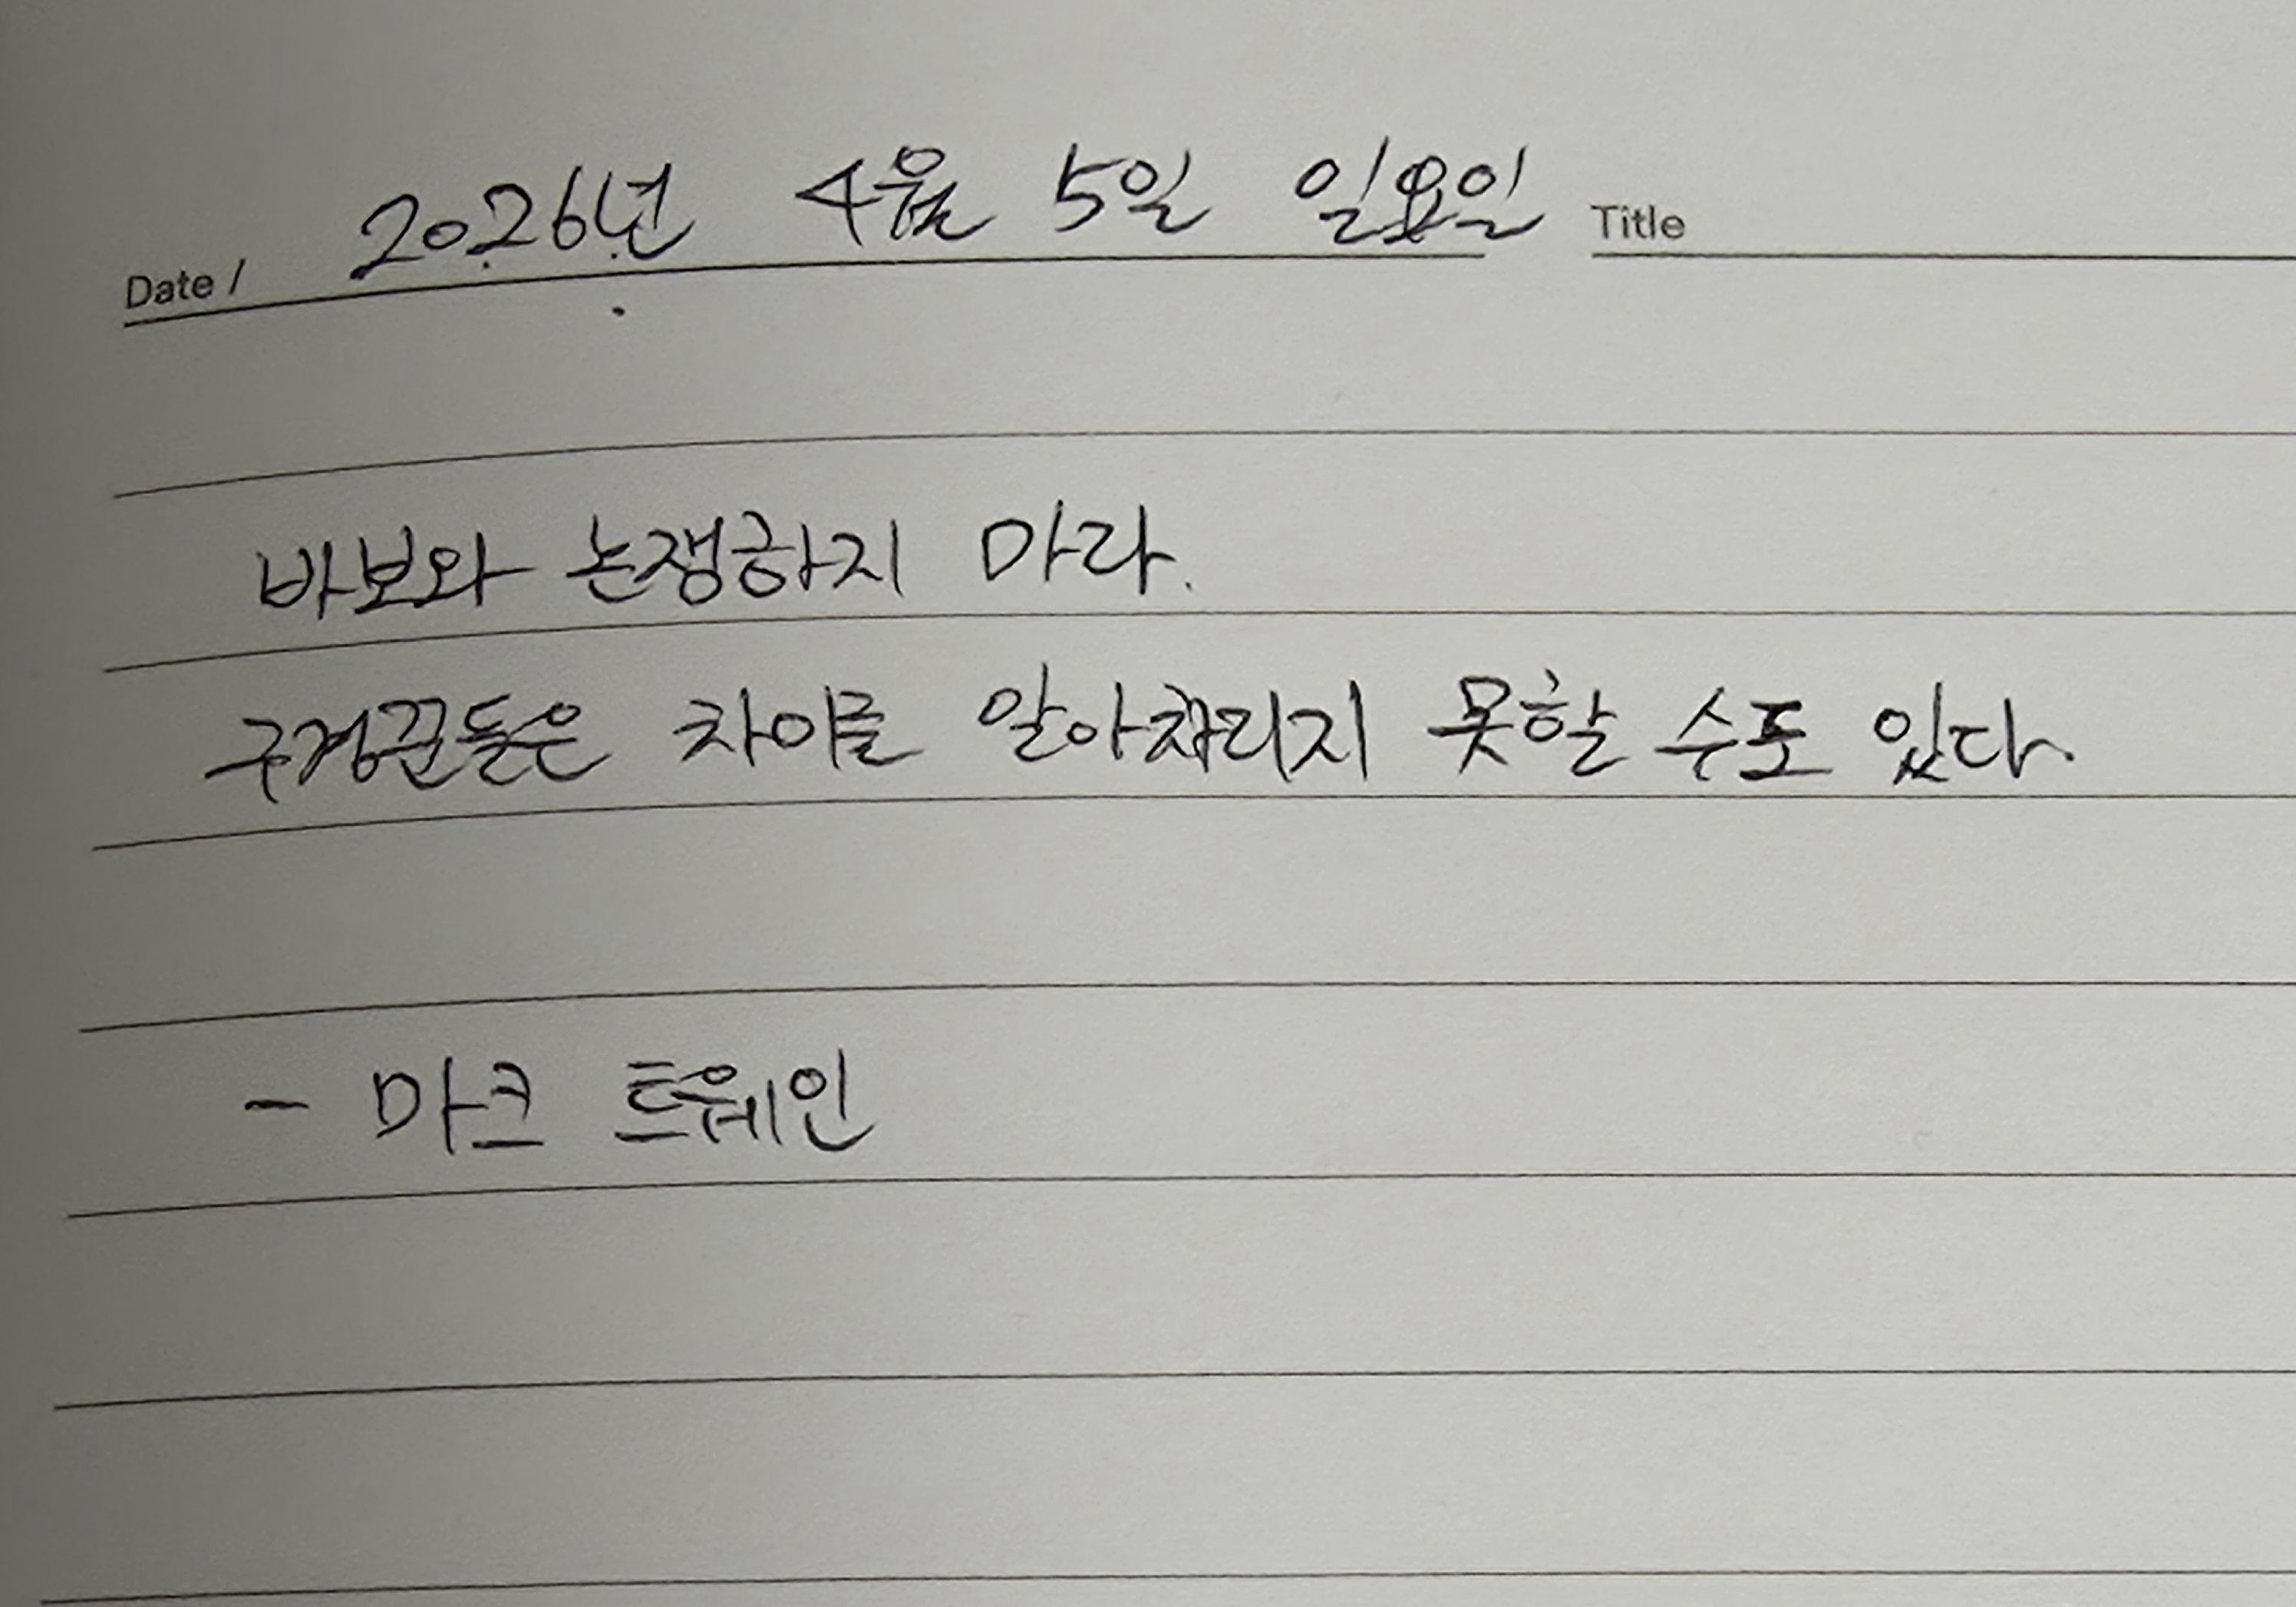 Date / 2026년 4월 5일 일요일 Title
바보와 논쟁하지 마라.
구경꾼들은 차이를 알아차리지 못할 수도 있다.
- 마크 트웨인